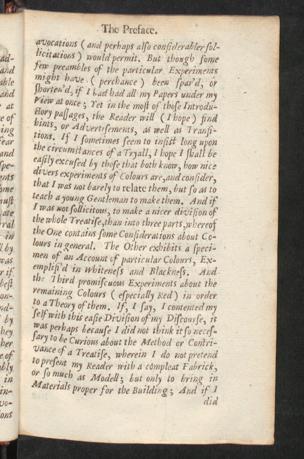 The Preface.
avocations (and perhaps also considerabler sol-
licitations) would permit. But though some
few preambles of the particular Experiments
might have (perchance) been spar'd, or
shorten'd, if I had had all my Papers under my
View at once; Yet in the most of those Introdu-
ctory passages, the Reader will (I hope) find
hints, or Advertisements, as well as Transi-
tions. If I sometimes seem to insist long upon
the circumstances of a Tryall, I hope I shall be
easily excused by those that both know, how nice
divers experiments of Colours are, and consider,
that I was not barely to relate them, but so as to
teach a young Gentleman to make them. And if
I was not sollicitous, to make a nicer division of
the whole Treatise, than into three parts, whereof
the One contains some Considerations about Co-
lours in general. The Other exhibits a speci-
men of an Account of particular Colours, Ex-
emplifi'd in Whiteness and Blackness. And
the Third promiscuous Experiments about the
remaining Colours (especially Red) in order
to a Theory of them. If, I say, I contented my
self with this easie Division of my Discourse, it
was perhaps because I did not think it so neces-
sary to be Curious about the Method or Contri-
vance of a Treatise, wherein I do not pretend
to present my Reader with a compleat Fabrick,
or so much as Modell; but only to bring in
Materials proper for the Building; And if I
did